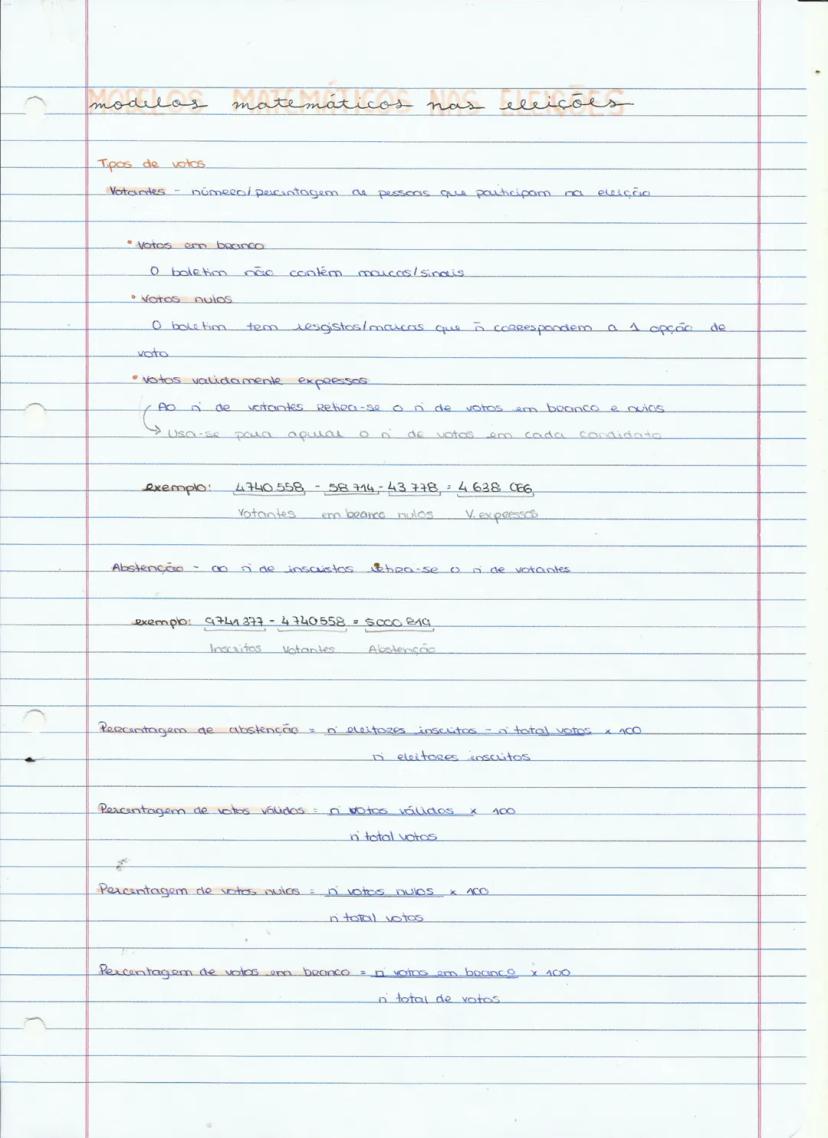 modelos matemáticos nas eleições
Tipos de votos
Votantes - número/percentagem de pessoas que participam na eleição
• Votos em branco
O boletim não contém marcas/sinais
• Votos nulos
O boletim tem resgistos/marcas que ñ correspondem a 1 opção de
voto
• Votos validamente expressos
Ao nº de votantes retira-se o nº de votos em branco e nulos
↳ Usa-se para apurar o nº de votos em cada candidato
exemplo: 4740 558 - 58 714 - 43 778 = 4 638 066
Votantes em branco nulos V. expressos
Abstenção - ao nº de inscritos retira-se o nº de votantes
exemplo: 9741 377 - 4 740558 = 5000 819
Inscritos Votantes Abstenção
Percentagem de abstenção = nº eleitores inscritos - nº total votos × 100
nº eleitores inscritos
Percentagem de votos válidos = nº votos válidos × 100
nº total votos
Percentagem de votos nulos = nº votos nulos × 100
nº total votos
Percentagem de votos em branco = nº votos em branco × 100
nº total de votos